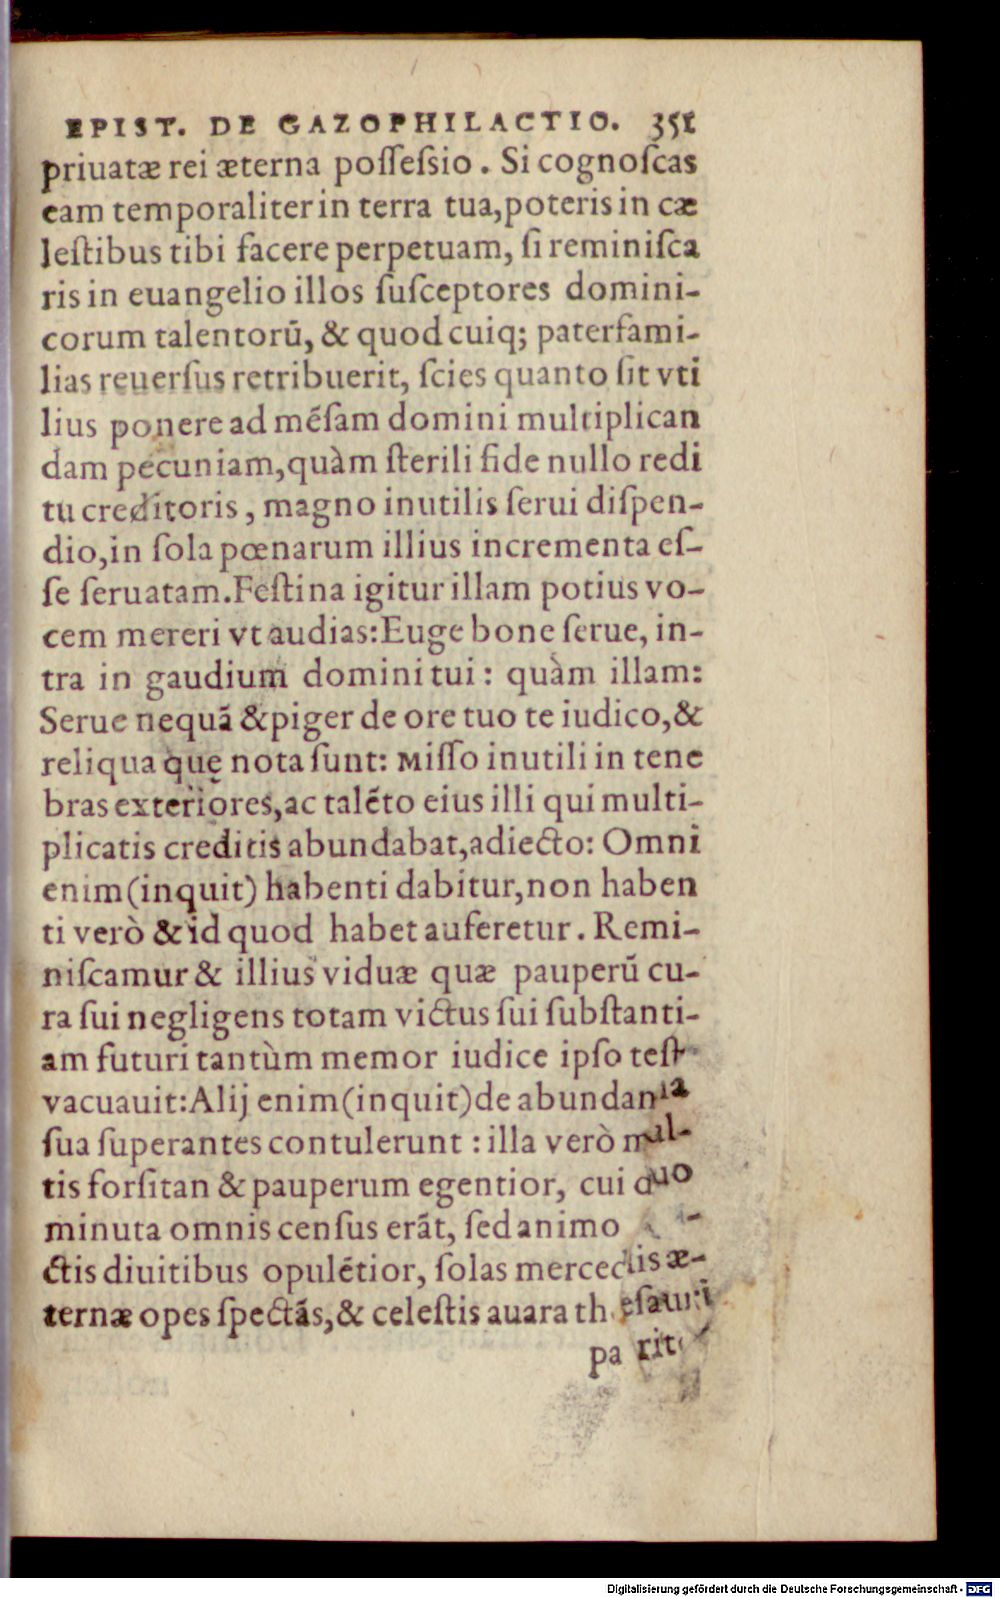 EPIST. DE GAZOPHILACTIO. 351
priuatæ rei æterna poſſeſsio. Si cognoſcas
eam temporaliter in terra tua, poteris in cæ
leſtibus tibi facere perpetuam, ſi reminiſca
ris in euangelio illos ſuſceptores domini-
corum talentorū, & quod cuiq; paterfami-
lias reuerſus retribuerit, ſcies quanto ſit vti
lius ponere ad mēſam domini multiplican
dam pecuniam, quàm ſterili fide nullo redi
tu creditoris, magno inutilis ſerui diſpen-
dio, in ſola pœnarum illius incrementa eſ-
ſe ſeruatam. Feſtina igitur illam potius vo-
cem mereri vt audias: Euge bone ſerue, in-
tra in gaudium domini tui: quàm illam:
Serue nequā & piger de ore tuo te iudico, &
reliqua quę nota ſunt: Miſſo inutili in tene
bras exteriores, ac talēto eius illi qui multi-
plicatis creditis abundabat, adiecto: Omni
enim (inquit) habenti dabitur, non haben
ti verò & id quod habet auferetur. Remi-
niſcamur & illius viduæ quæ pauperū cu-
ra ſui negligens totam victus ſui ſubſtanti-
am futuri tantùm memor iudice ipſo teſt
vacuauit: Alij enim (inquit) de abundantia
ſua ſuperantes contulerunt: illa verò mul-
tis forſitan & pauperum egentior, cui duo
minuta omnis cenſus erāt, ſed animo
ctis diuitibus opulētior, ſolas mercedis æ-
ternæ opes ſpectās, & celeſtis auara theſauri
pariter
Digitalisierung gefördert durch die Deutsche Forschungsgemeinschaft - DFG